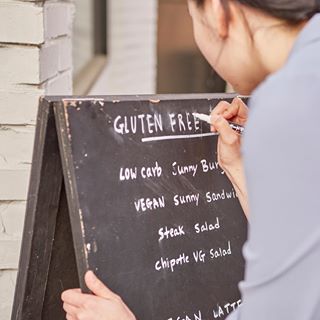 GLUTEN FREE
LOW CARB Junny
VEGAN Sunny Sandw
Steak Salad
chipotle VG Salad
LATTE